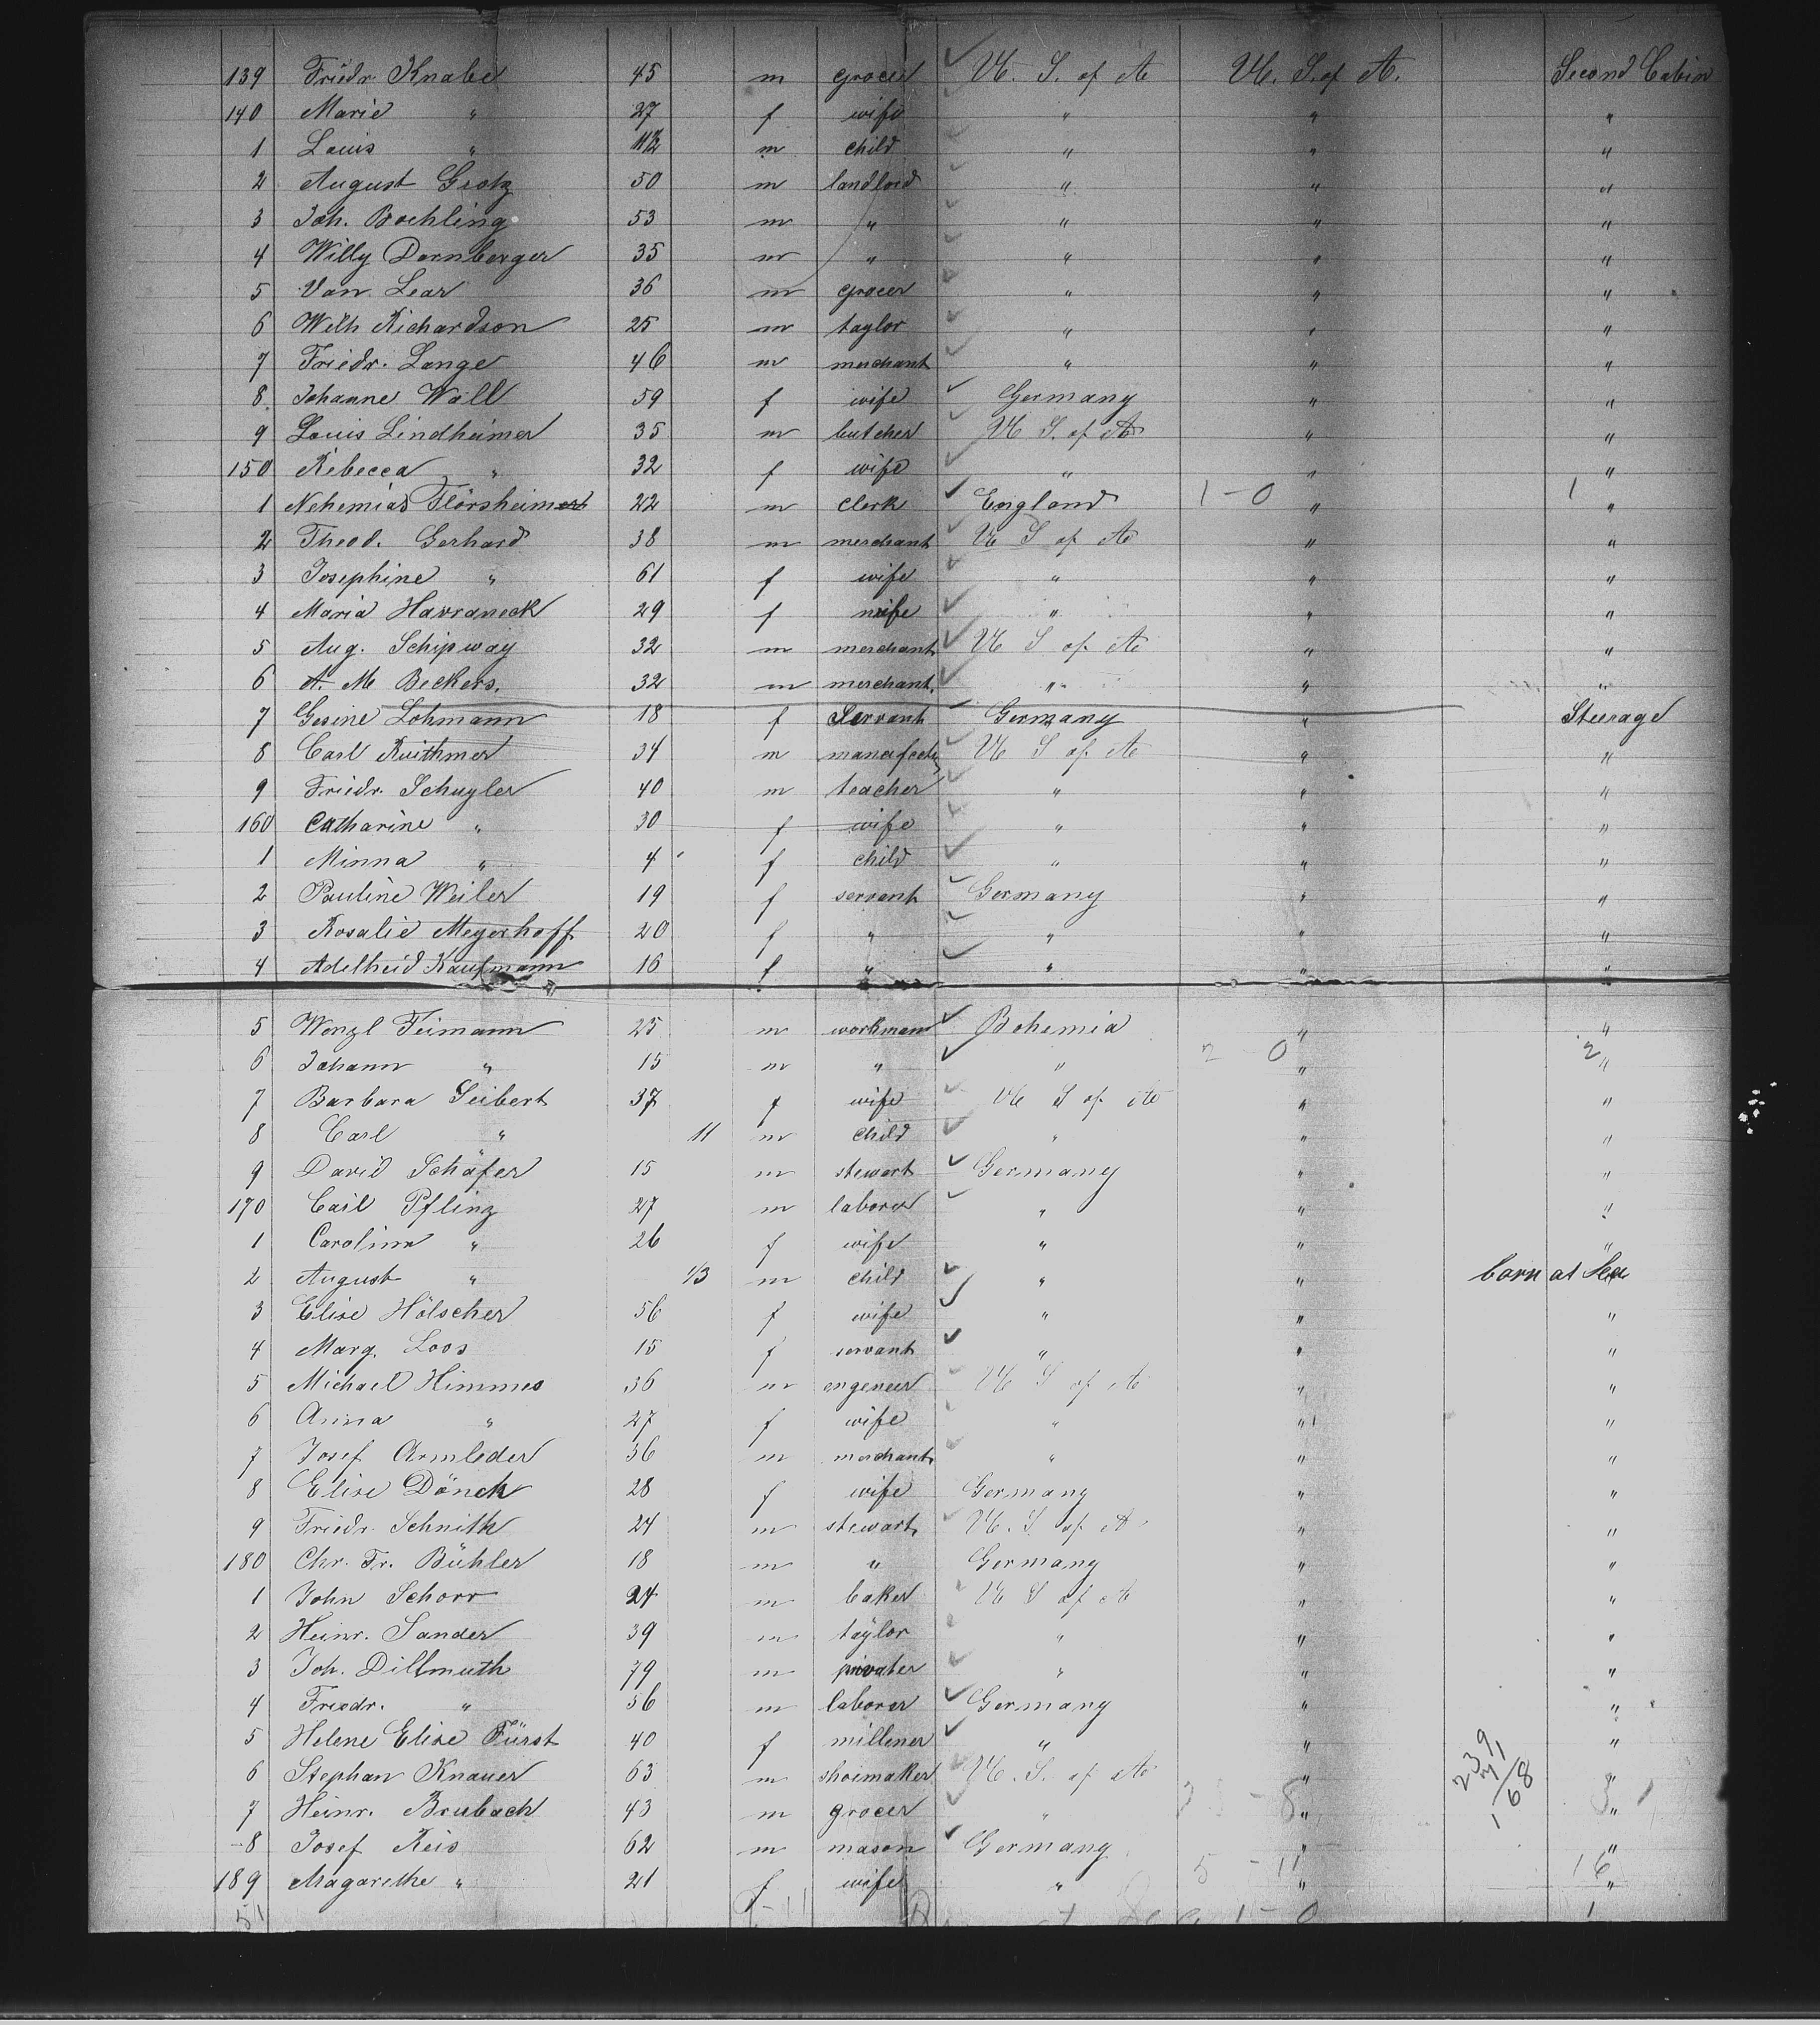 139 Friedr. Knabe 45 m grocer U. S. of A U. S. of A. Second Cabin
140 Marie " 27 f wife " " "
1 Louis " 11½ m child " " "
2 August Grotz 50 m landlord " " "
3 Joh. Boehling 53 m " " " "
4 Willy Dornberger 35 m " " " "
5 Van Lear 36 m grocer " " "
6 Wilh Richardson 25 m taylor " " "
7 Friedr. Lange 46 m merchant " " "
8 Johanne Wall 59 f wife Germany " "
9 Louis Lindheimer 35 m butcher U S. of A " "
150 Rebecca " 32 f wife " " "
1 Nehemias Flörsheim 22 m clerk England 1-0 " 1 "
2 Theod. Gerhard 38 m merchant U S of A " "
3 Josephine " 61 f wife " " "
4 Maria Havraneck 29 f wife " " "
5 Aug. Schipway 32 m merchant U S of A " "
6 A. M Beckers. 32 m merchant. " " "
7 Gesine Lohmann 18 f Servant Germany " Steerage
8 Carl Ruithmer 34 m U S of A " "
9 Friedr. Schuyler 40 m teacher " " "
160 Catharine " 30 f wife " " "
1 Minna " 4 f child " " "
2 Pauline Weiler 19 f servant Germany " "
3 Rosalie Meyerhoff 20 f " " " "
4 Adelheid Kaufmann 16 f " " " "
5 Wenzl Feimann 25 m workman Bohemia " "
6 Johann " 15 m " " 2-0 " 2 "
7 Barbara Seibert 37 f wife U S of A " "
8 Carl " 11 m child " " "
9 David Schäfer 15 m stewart Germany " "
170 Carl Pfling 27 m laborer " " "
1 Carolina " 26 f wife " " "
2 August " 1/3 m child " " born at Sea
3 Elise Hölscher 56 f wife " " "
4 Marg. Loos 15 f servant " " "
5 Michael Himmes 36 m engeneer U S of A " "
6 Anna " 27 f wife " " "
7 Josef Armleder 36 m merchant " " "
8 Elise Dönch 28 f wife Germany " "
9 Friedr. Schnith 24 m stewart U. S. of A " "
180 Chr. Fr. Bühler 18 m " Germany " "
1 John Schorr 24 m baker U S of A " "
2 Heinr. Sander 39 m taylor " " "
3 Joh. Dillmuth 79 m privater " " "
4 Friedr. " 36 m laborer Germany " "
5 Helene Elise Fürst 40 f millener " " "
6 Stephan Knauer 63 m shoimaker U. S. of A " "
7 Heinr. Brubach 43 m grocer " " "
8 Josef Reis 62 m mason Germany " "
189 Magarethe " 21 f wife " 5-11 " 16 "
51 1-0 1